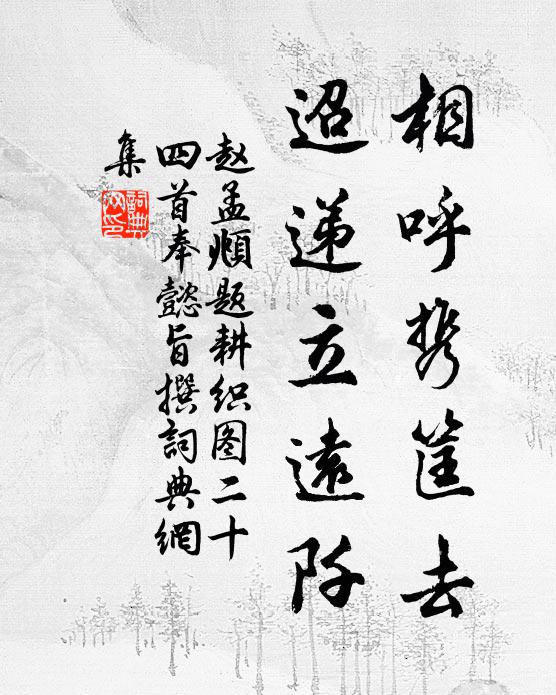 相呼携筐去
迢递立遠阡
赵孟頫题耕织图二十
四首奉懿旨撰詞典網
集
詞典网印